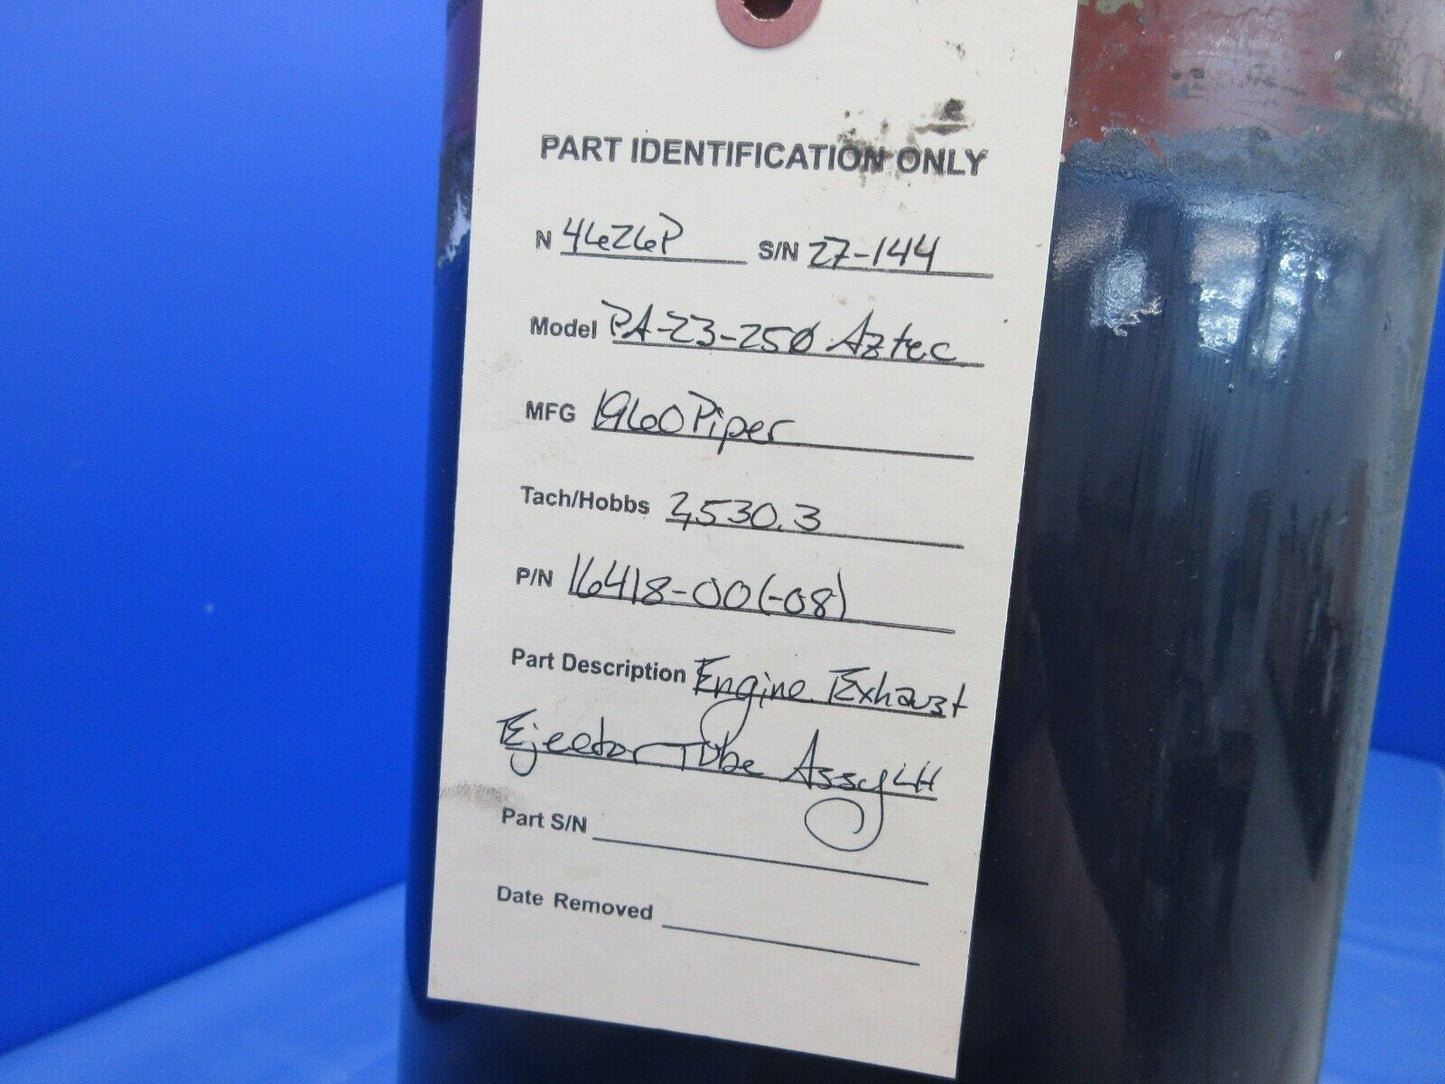 PART IDENTIFICATION ONLY
N 4626P S/N 27-144
Model PA-23-250 Aztec
MFG 1960 Piper
Tach/Hobbs 2,530.3
P/N 16418-00(-08)
Part Description Engine Exhaust
Ejector Tube Assy LH
Part S/N
Date Removed